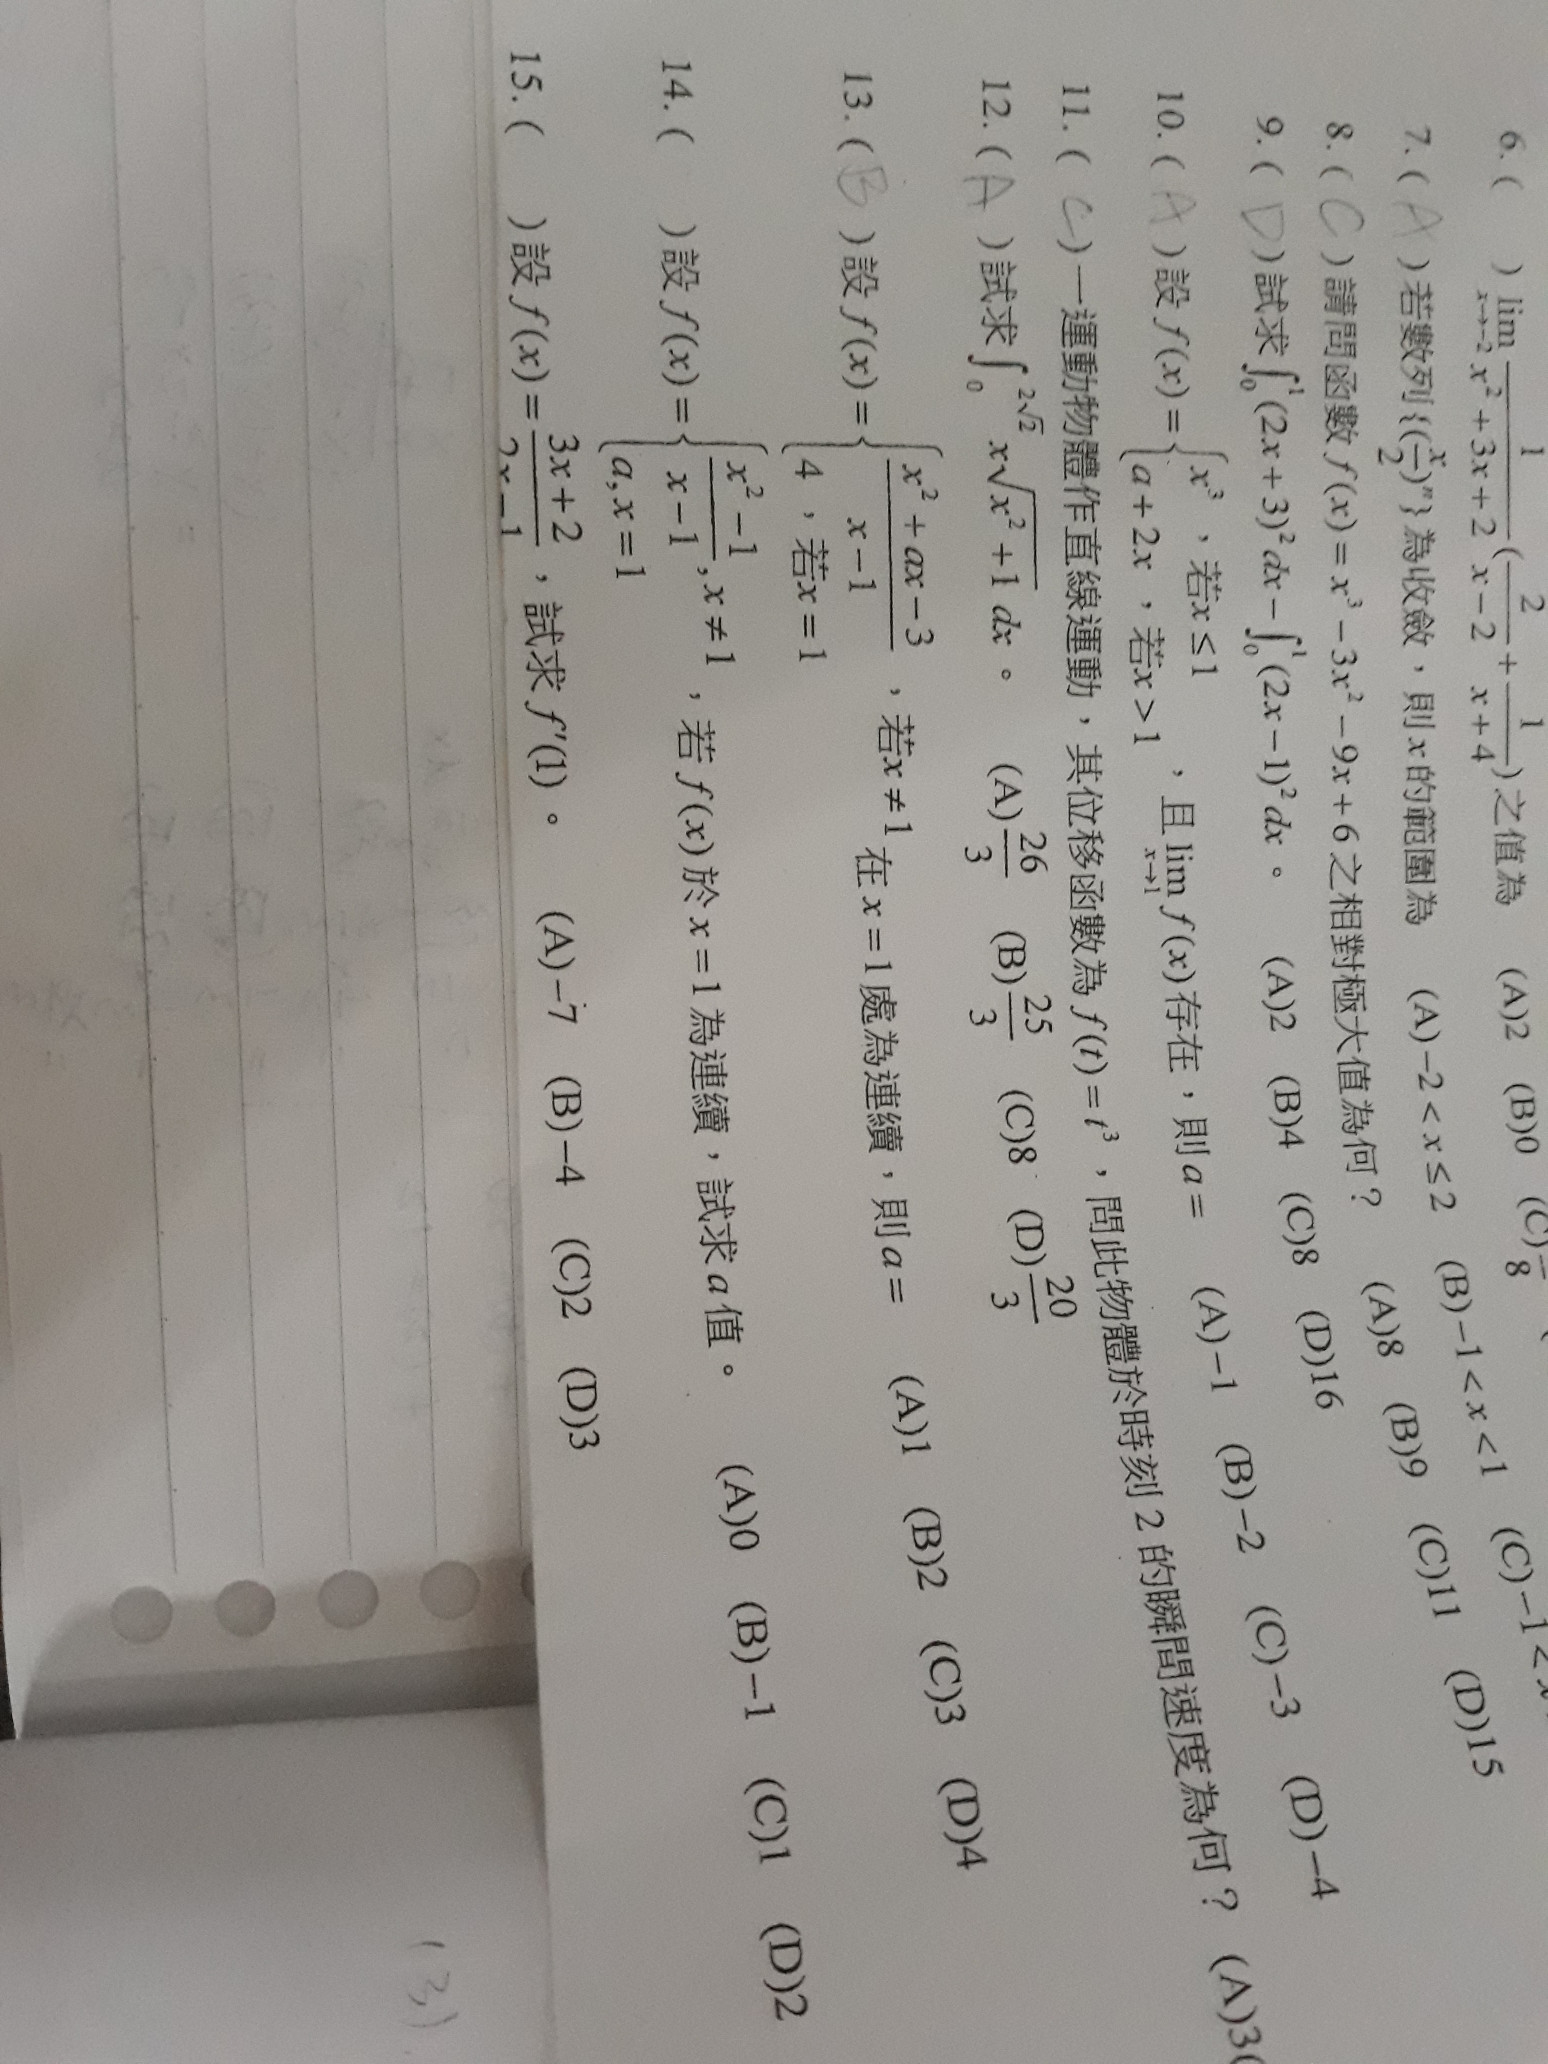 6. (　) lim_{x→-2} 1/(x²+3x+2) (2/(x-2) + 1/(x+4)) 之值為 (A)2 (B)0 (C)
7. ( A ) 若數列{(x/2)ⁿ}為收斂，則x的範圍為 (A)-2<x≤2 (B)-1<x<1 (C)-1<
8. ( C ) 請問函數f(x)=x³-3x²-9x+6之相對極大值為何？ (A)8 (B)9 (C)11 (D)15
9. ( D ) 試求∫₀¹(2x+3)²dx-∫₀¹(2x-1)²dx。 (A)2 (B)4 (C)8 (D)16
10. ( A ) 設f(x)={x³，若x≤1 ; a+2x，若x>1，且lim_{x→1} f(x)存在，則a= (A)-1 (B)-2 (C)-3 (D)-4
11. ( C ) 一運動物體作直線運動，其位移函數為f(t)=t³，問此物體於時刻2的瞬間速度為何？ (A)3
12. ( A ) 試求∫₀^{2√2} x√(x²+1) dx。 (A)26/3 (B)25/3 (C)8 (D)20/3
13. ( B ) 設f(x)={(x²+ax-3)/(x-1)，若x≠1 ; 4，若x=1 在x=1處為連續，則a= (A)1 (B)2 (C)3 (D)4
14. (　) 設f(x)={(x²-1)/(x-1), x≠1 ; a, x=1，若f(x)於x=1為連續，試求a值。 (A)0 (B)-1 (C)1 (D)2
15. (　) 設f(x)=(3x+2)/(2x-1)，試求f'(1)。 (A)-7 (B)-4 (C)2 (D)3